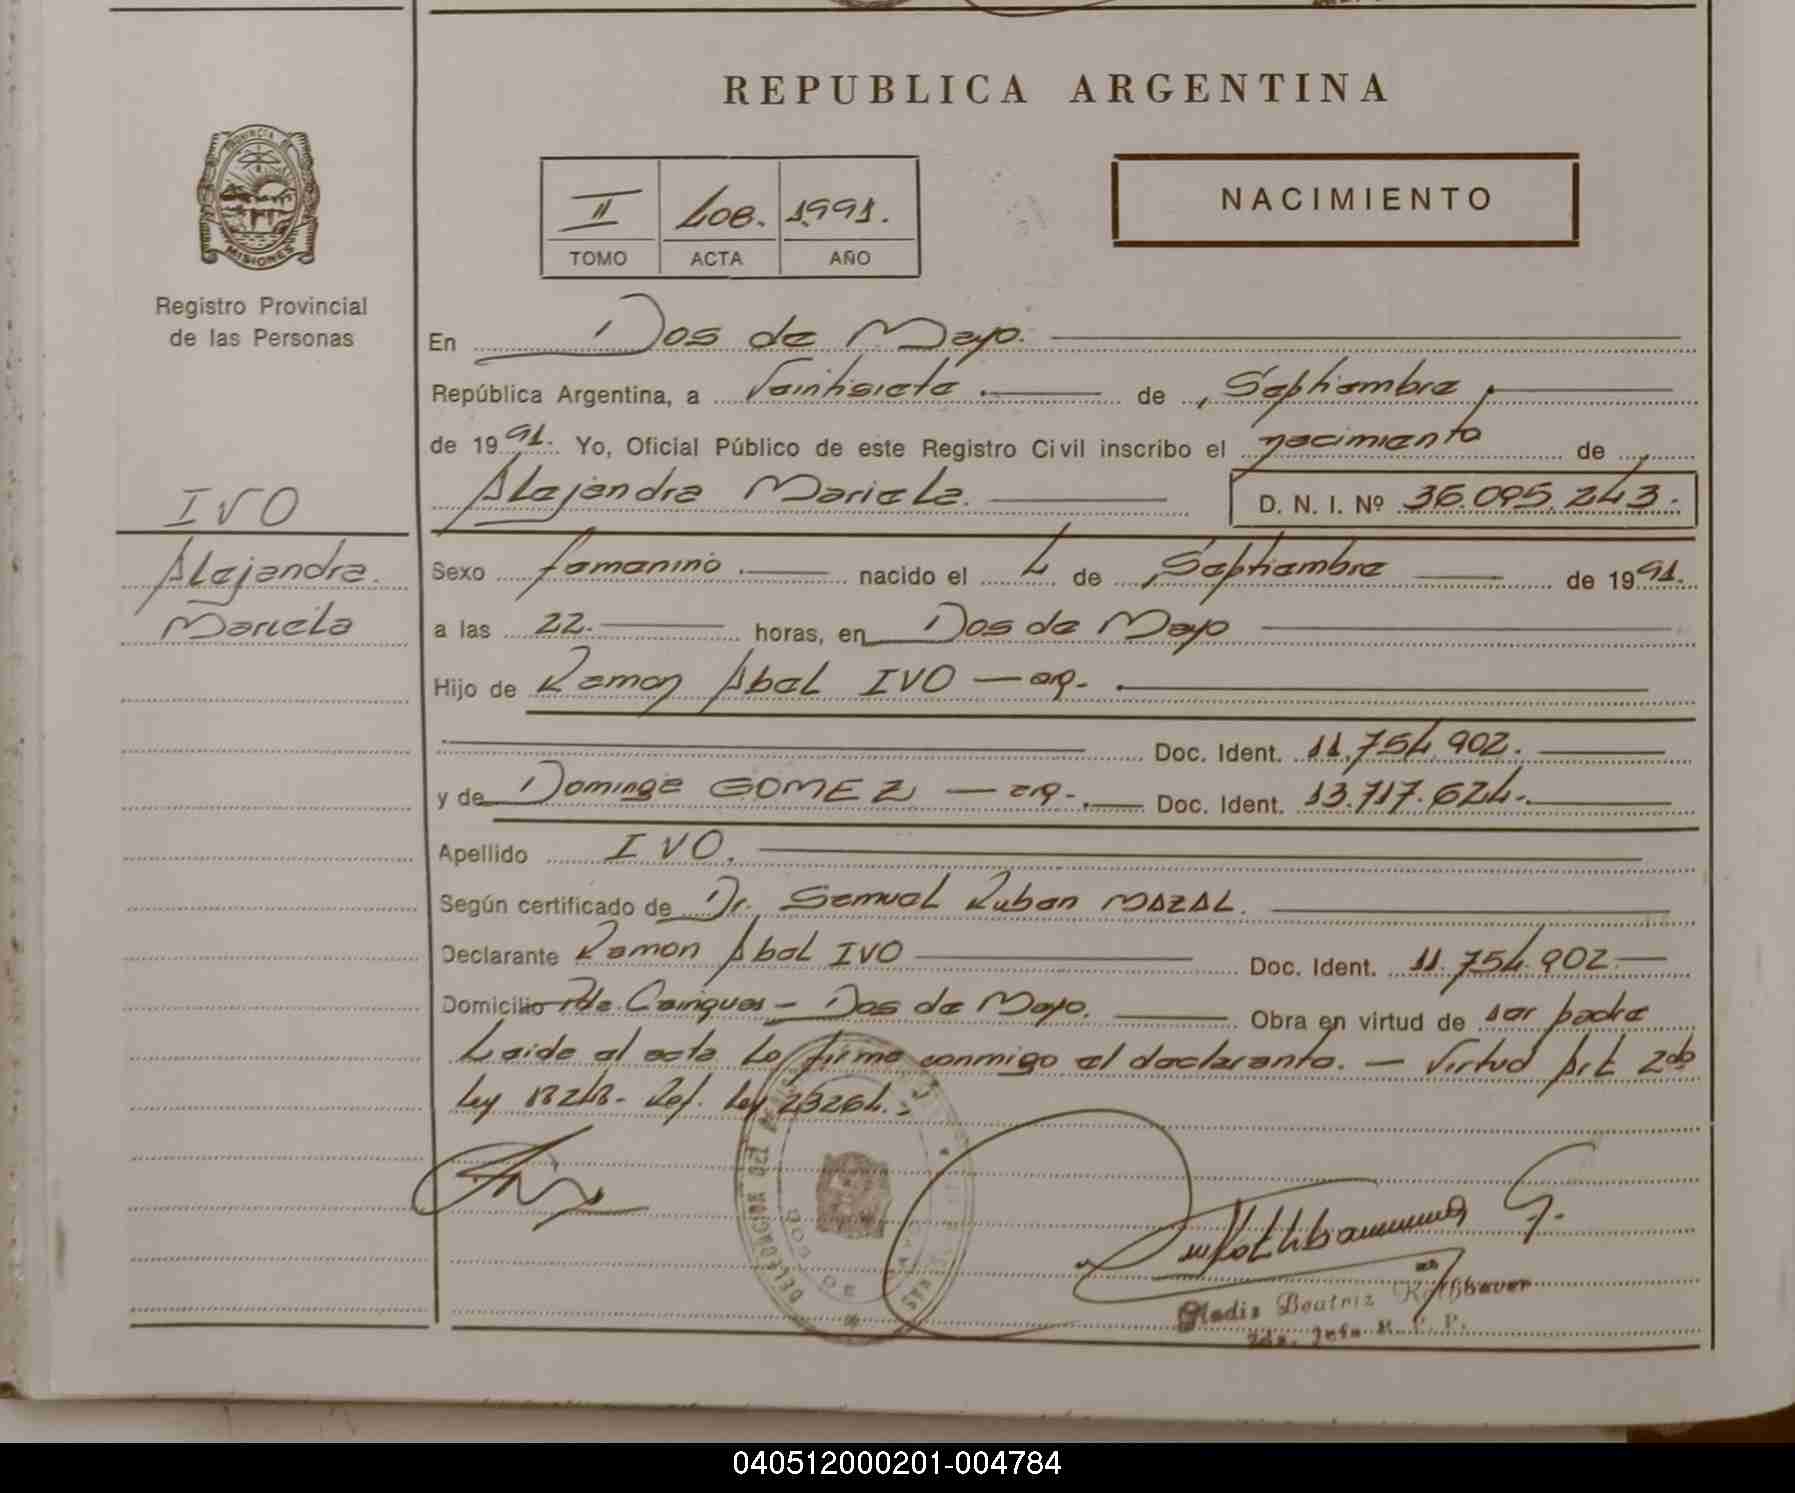 REPUBLICA ARGENTINA
PROVINCIA DE
MISIONES
Registro Provincial
de las Personas
II 408. 1991.
TOMO ACTA AÑO
NACIMIENTO
En Dos de Mayo.
República Argentina, a Veintisiete de Septiembre
de 1991. Yo, Oficial Público de este Registro Civil inscribo el nacimiento de
Alejandra Mariela. D. N. I. Nº 36.095.243.
IVO
Alejandra
Mariela
Sexo femenino nacido el 4 de Septiembre de 1991.
a las 22. horas, en Dos de Mayo
Hijo de Ramon Abel IVO — arg.
Doc. Ident. 11.754.902.
y de Dominga GOMEZ — arg. Doc. Ident. 13.717.624.
Apellido IVO.
Según certificado de Dr. Samuel Ruben MAZAL.
Declarante Ramon Abel IVO Doc. Ident. 11.754.902
Domicilio Pde. Cainguas – Dos de Mayo. Obra en virtud de ser padre
Leida el acta la firma conmigo el declarante. — Virtud Art. 2do
Ley 18248. Ref. Ley 23264.
DELEGACION DEL
DOS DE MAYO
Gladis Beatriz Rothbauer
2da. Jefe R. P. P.
040512000201-004784